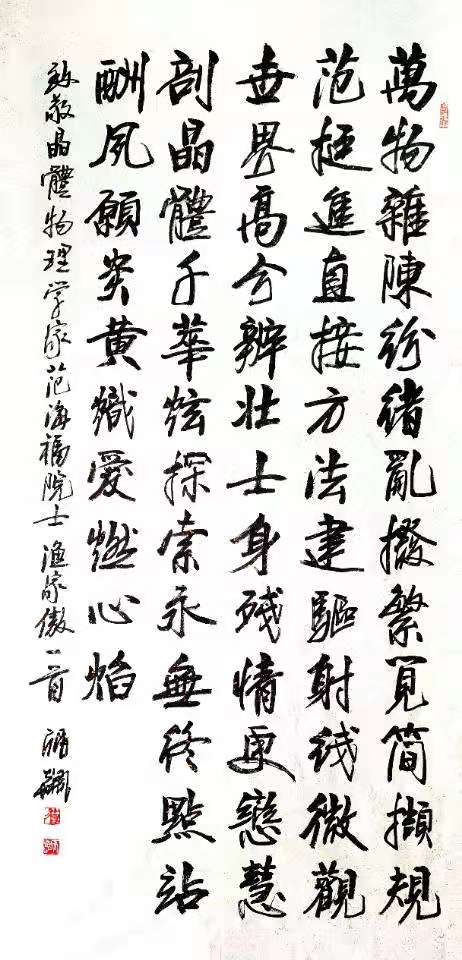 萬物雜陳紛緒亂撥繁見簡擷規
范挺進直接方法建驅射线微觀
世界高分辨壮士身残情更戀慧
剖晶體千華炫探索永無終點站
酬夙願炎黄熾愛燃心焰
致敬晶體物理学家范海福院士 渔家傲一首